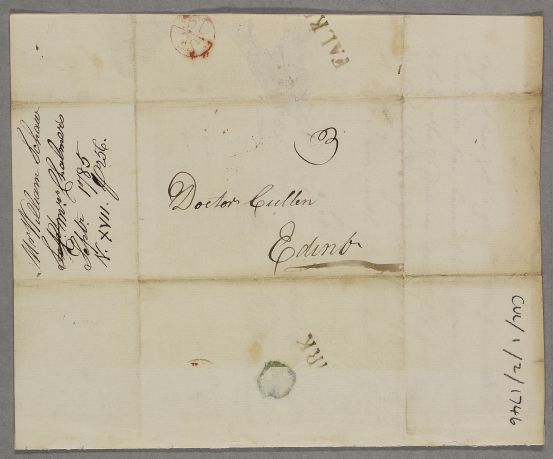 FALK
3
Doctor Cullen
Edinb.
Mr William Schaw
Mr Chalmers
Septr. 1785
N. XVII. p. 256.
IRK
CUL/1/2/1746